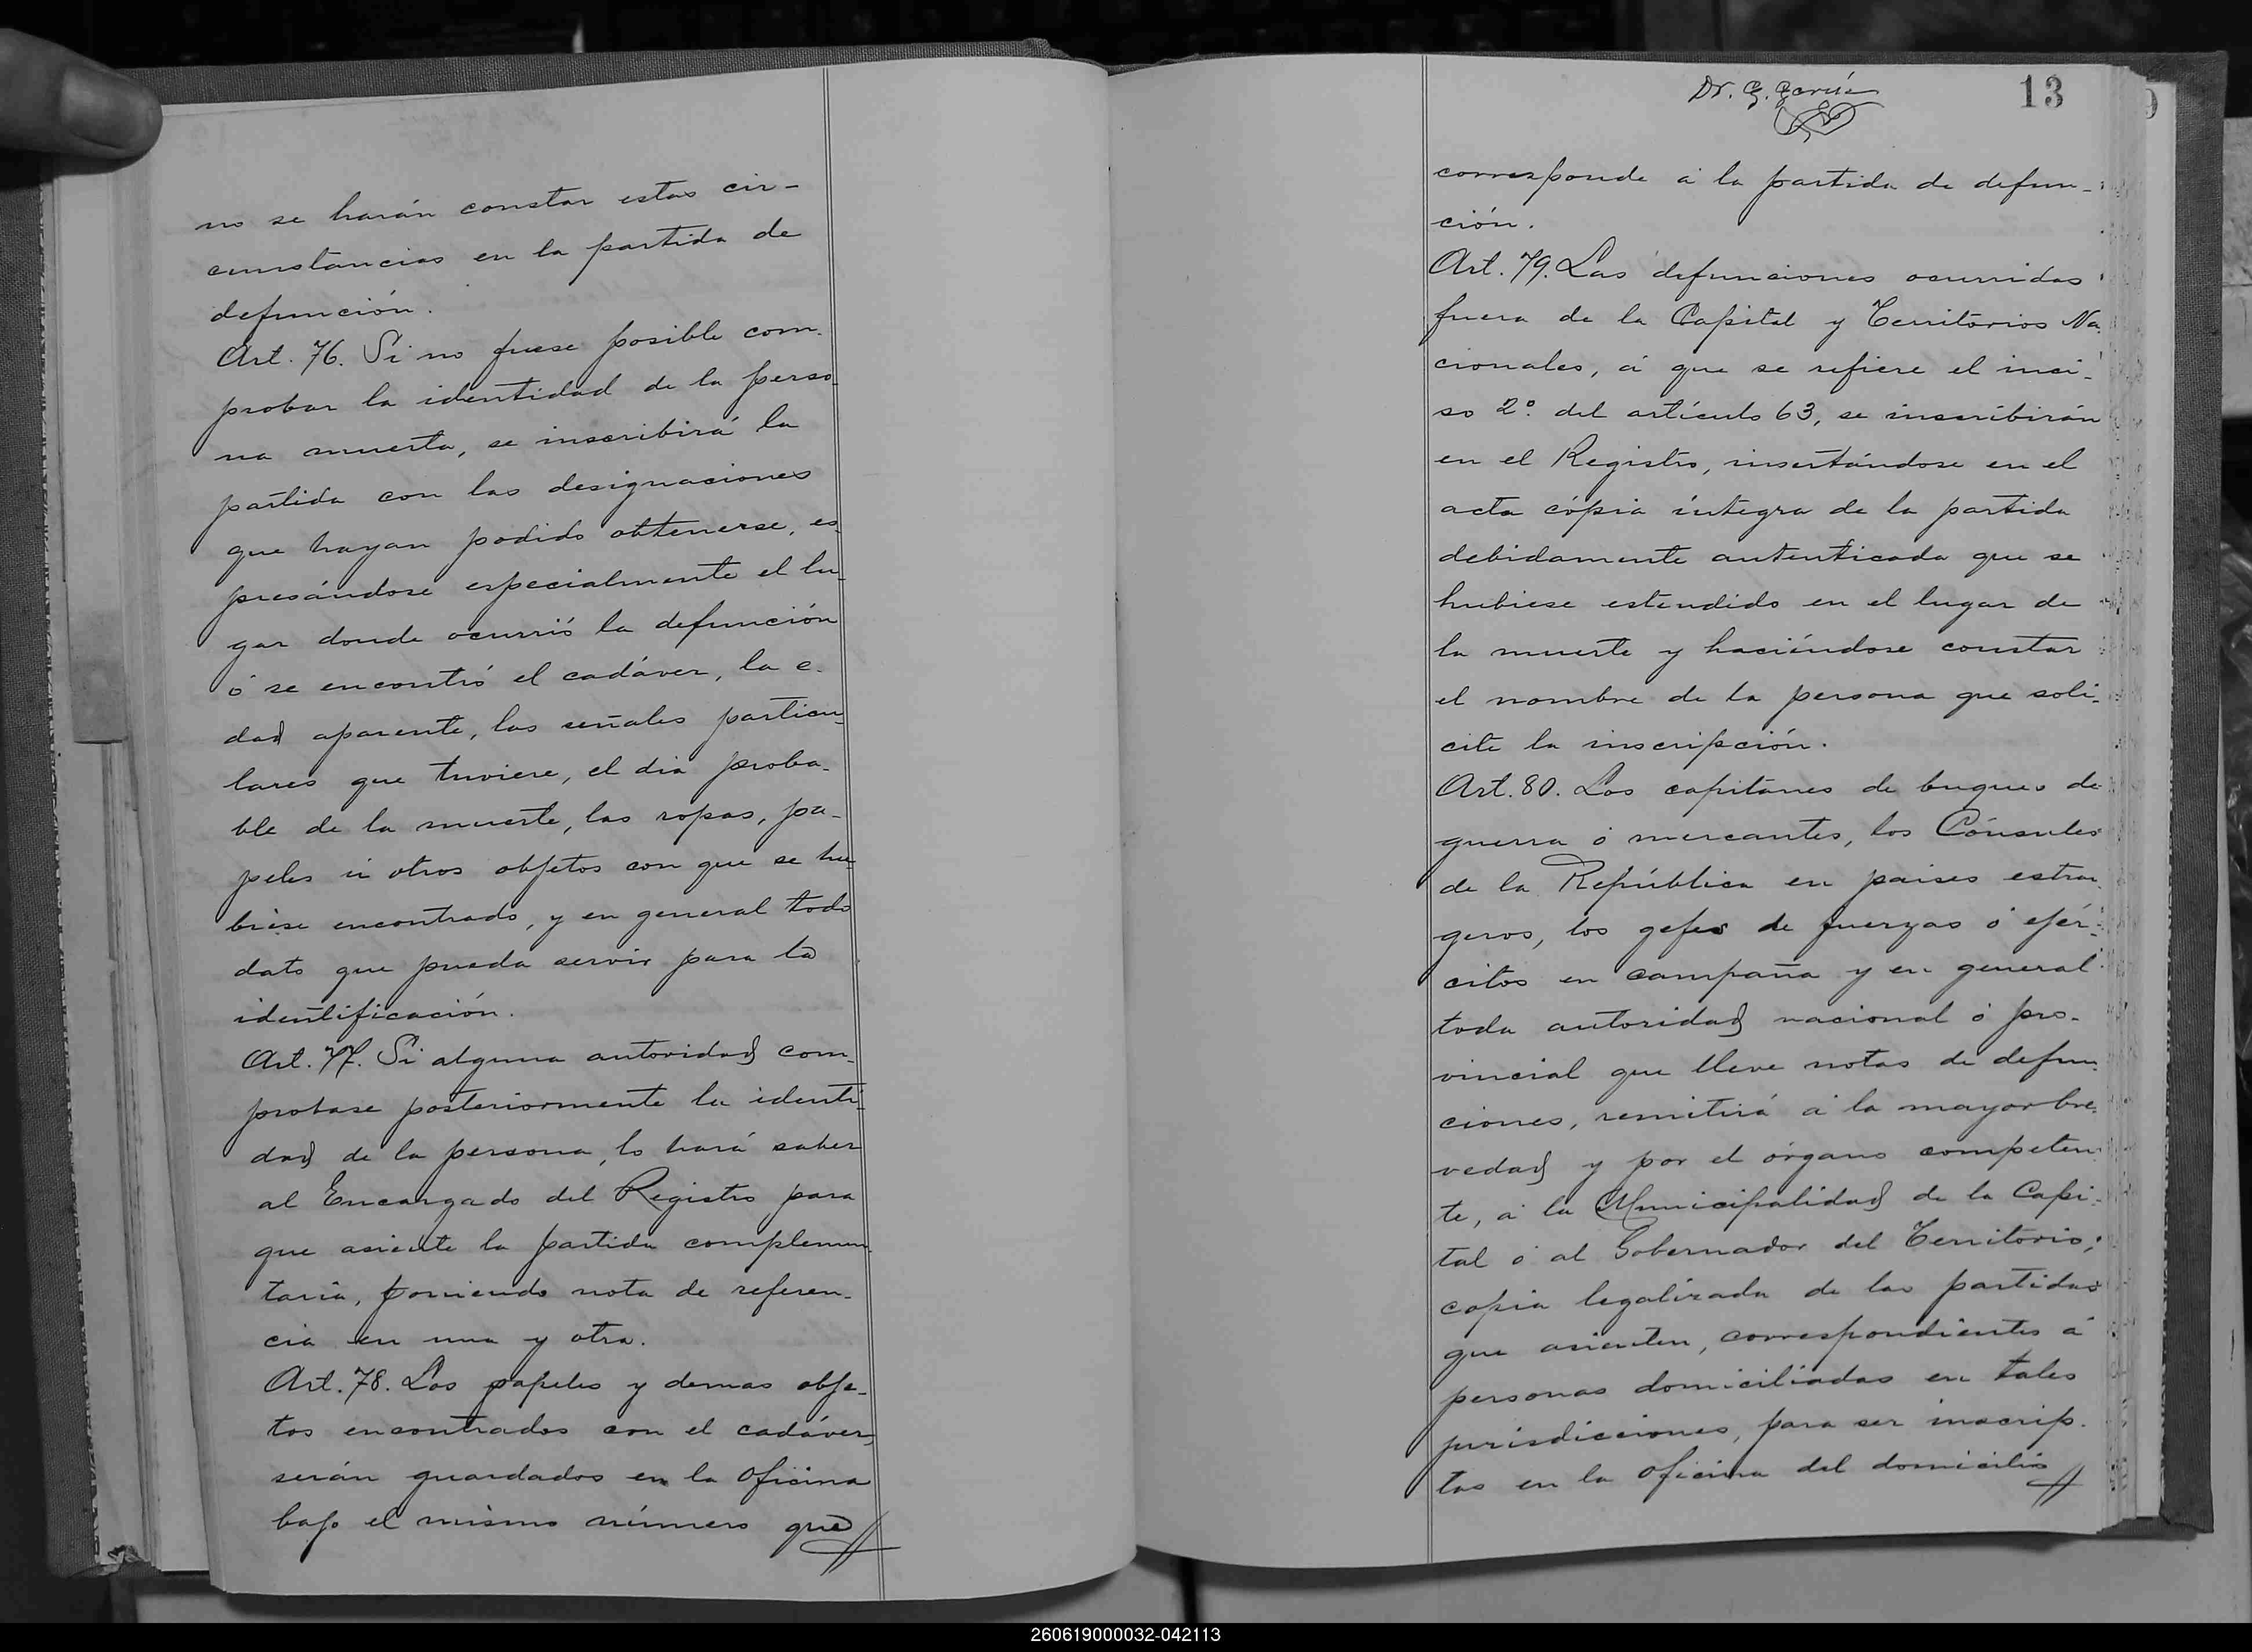 no se harán constar estas cir-
cunstancias en la partida de
defunción.
Art. 76. Si no fuese posible com-
probar la identidad de la perso-
na muerta, se inscribirá la
partida con las designaciones
que hayan podido obtenerse, es-
presándose especialmente el lu-
gar donde ocurrió la defunción
ó se encontró el cadáver, la e-
dad aparente, las señales particu-
lares que tuviere, el dia proba-
ble de la muerte, las ropas, pa-
peles ú otros objetos con que se hu-
biese encontrado, y en general todo
dato que pueda servir para la
identificación.
Art. 77. Si alguna autoridad com-
probase posteriormente la identi-
dad de la persona, lo hará saber
al Encargado del Registro para
que asiente la partida complemen-
taria, poniendo nota de referen-
cia en una y otra.
Art. 78. Los papeles y demas obje-
tos encontrados con el cadáver,
serán guardados en la oficina
bajo el mismo número que
Dr. G. García
13
corresponde á la partida de defun-
ción.
Art. 79. Las defunciones ocurridas
fuera de la Capital y Territorios Na-
cionales, á que se refiere el inci-
so 2º. del artículo 63, se inscribirán
en el Registro, insertándose en el
acta cópia íntegra de la partida
debidamente autenticada que se
hubiese estendido en el lugar de
la muerte y haciéndose constar
el nombre de la persona que soli-
cite la inscripción.
Art. 80. Los capitanes de buques de
guerra ó mercantes, los Cónsules
de la República en paises estran-
geros, los gefes de fuerzas ó ejér-
citos en campaña y en general
toda autoridad nacional ó pro-
vincial que lleve notas de defun-
ciones, remitirá á la mayor bre-
vedad y por el órgano competen-
te, á la Municipalidad de la Capi-
tal ó al Gobernador del Territorio,
copia legalizada de las partidas
que asienten, correspondientes á
personas domiciliadas en tales
jurisdicciones, para ser inscrip-
tas en la oficina del domicilio
260619000032-042113